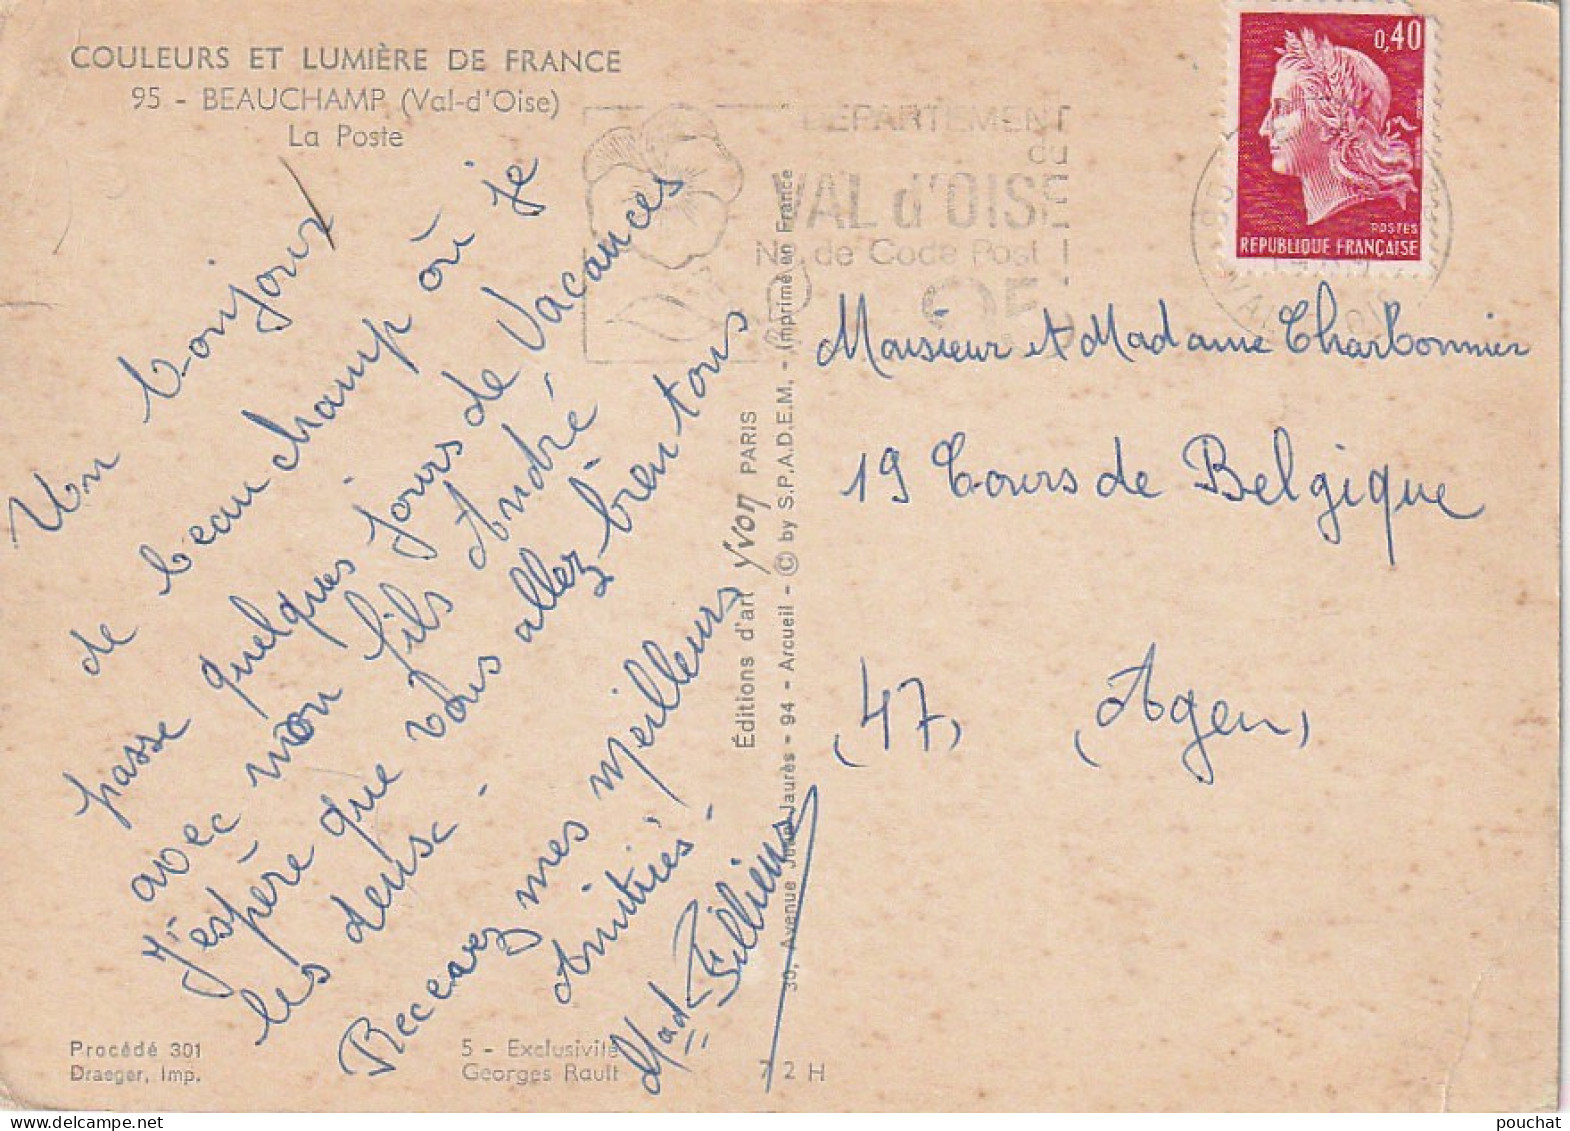 COULEURS ET LUMIÈRE DE FRANCE
95 - BEAUCHAMP (Val-d'Oise)
La Poste
Un bonjour
de beauchamp où je
passe quelques jours de Vacances
avec mon fils André,
J'espère que vous allez bien tous
les deux -
Recevez mes meilleurs
Amitiés -
Procédé 301
Draeger, Imp.
5 - Exclusivité
Georges Rault
72 H
Éditions d'art Yvon PARIS
30, Avenue Jean Jaurès - 94 - Arcueil - © by S.P.A.D.E.M. - Imprimé en France
DÉPARTEMENT
du
VAL d'OISE
No de Code Postal
95
0,40
POSTES
RÉPUBLIQUE FRANÇAISE
Monsieur et Madame Charbonnier
19 Cours de Belgique
(47) (Agen)
pouchat